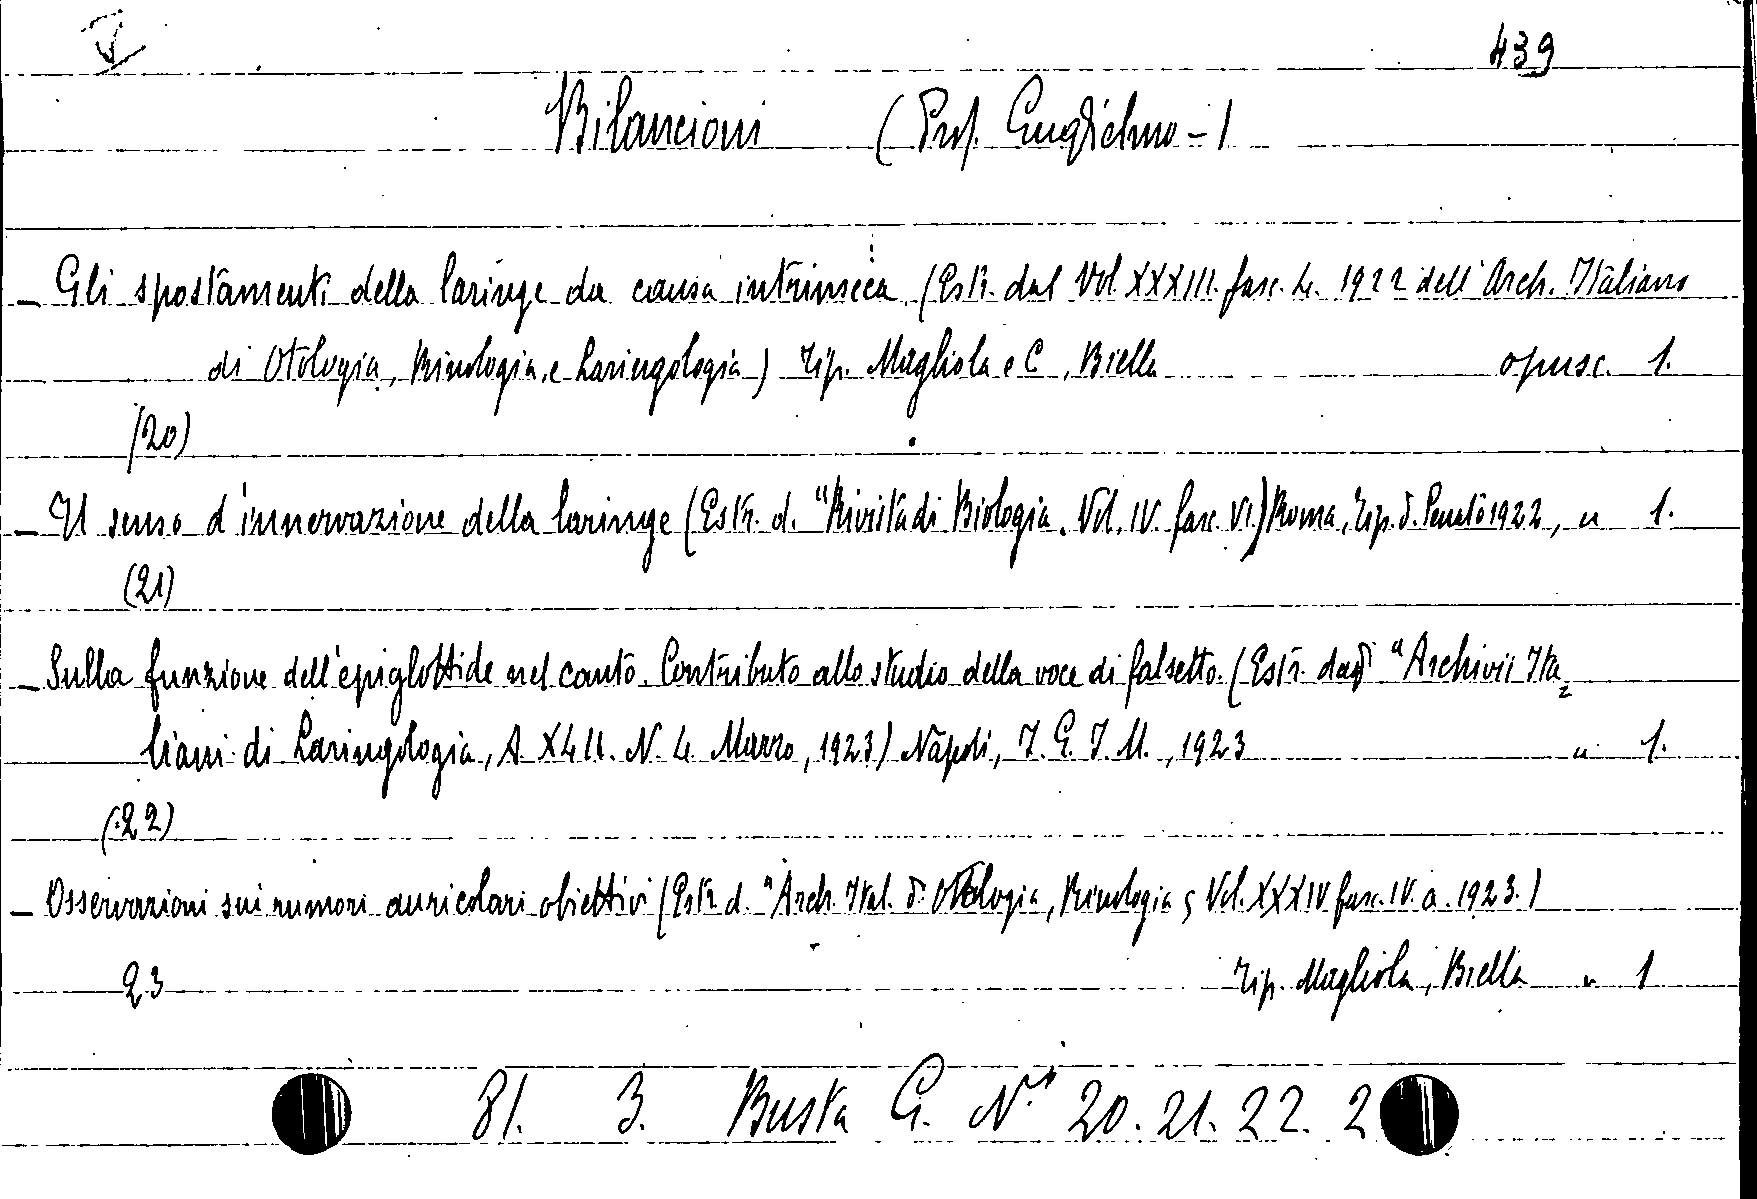 V 439
Bilancioni (Prof. Guglielmo-)
- Gli spostamenti della laringe da causa intrinseca (Estr. dal Vol XXXIII. fasc. 4. 1922 dell'Arch. Italiano
di Otologia, Rinologia, e Laringologia) Tip. Magliola e C, Biella opusc. 1.
(20)
- Il senso d'innervazione della laringe (Estr. d. "Rivista di Biologia. Vol. IV. fasc. VI.) Roma, Tip. 1922, " 1.
(21)
- Sulla funzione dell'epiglottide nel canto. Contributo allo studio della voce di falsetto. (Estr. dagli "Archivii Ita=
liani di Laringologia, A. XLII. N. 4. Marzo, 1923) Napoli, I. G. I. M., 1923 " 1.
(22)
- Osservazioni sui rumori auricolari obiettivi (Estr d. "Arch. Ital. di Otologia, Rinologia, Vol. XXXIV fasc. IV. a. 1923.)
23 Tip. Magliola, Biella " 1
81. 3. Busta G. N.ri 20. 21. 22. 2